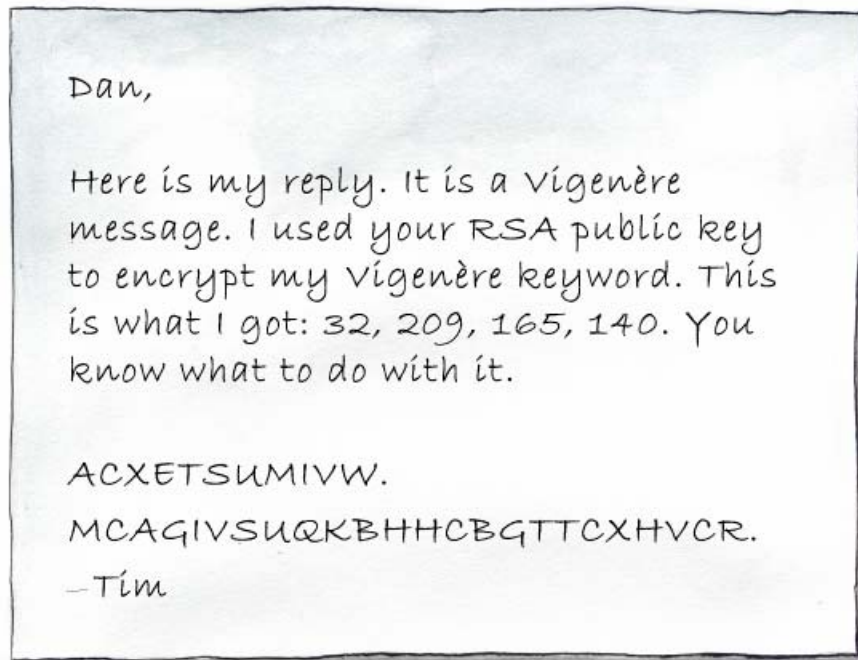 Dan,
Here is my reply. It is a Vigenère
message. I used your RSA public key
to encrypt my Vigenère keyword. This
is what I got: 32, 209, 165, 140. You
know what to do with it.
ACXETSUMIVW.
MCAGIVSUQKBHHCBGTTCXHVCR.
–Tim